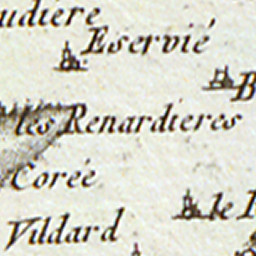 udiere
Eservié
B
les Renardieres
Corée
le
Vildard